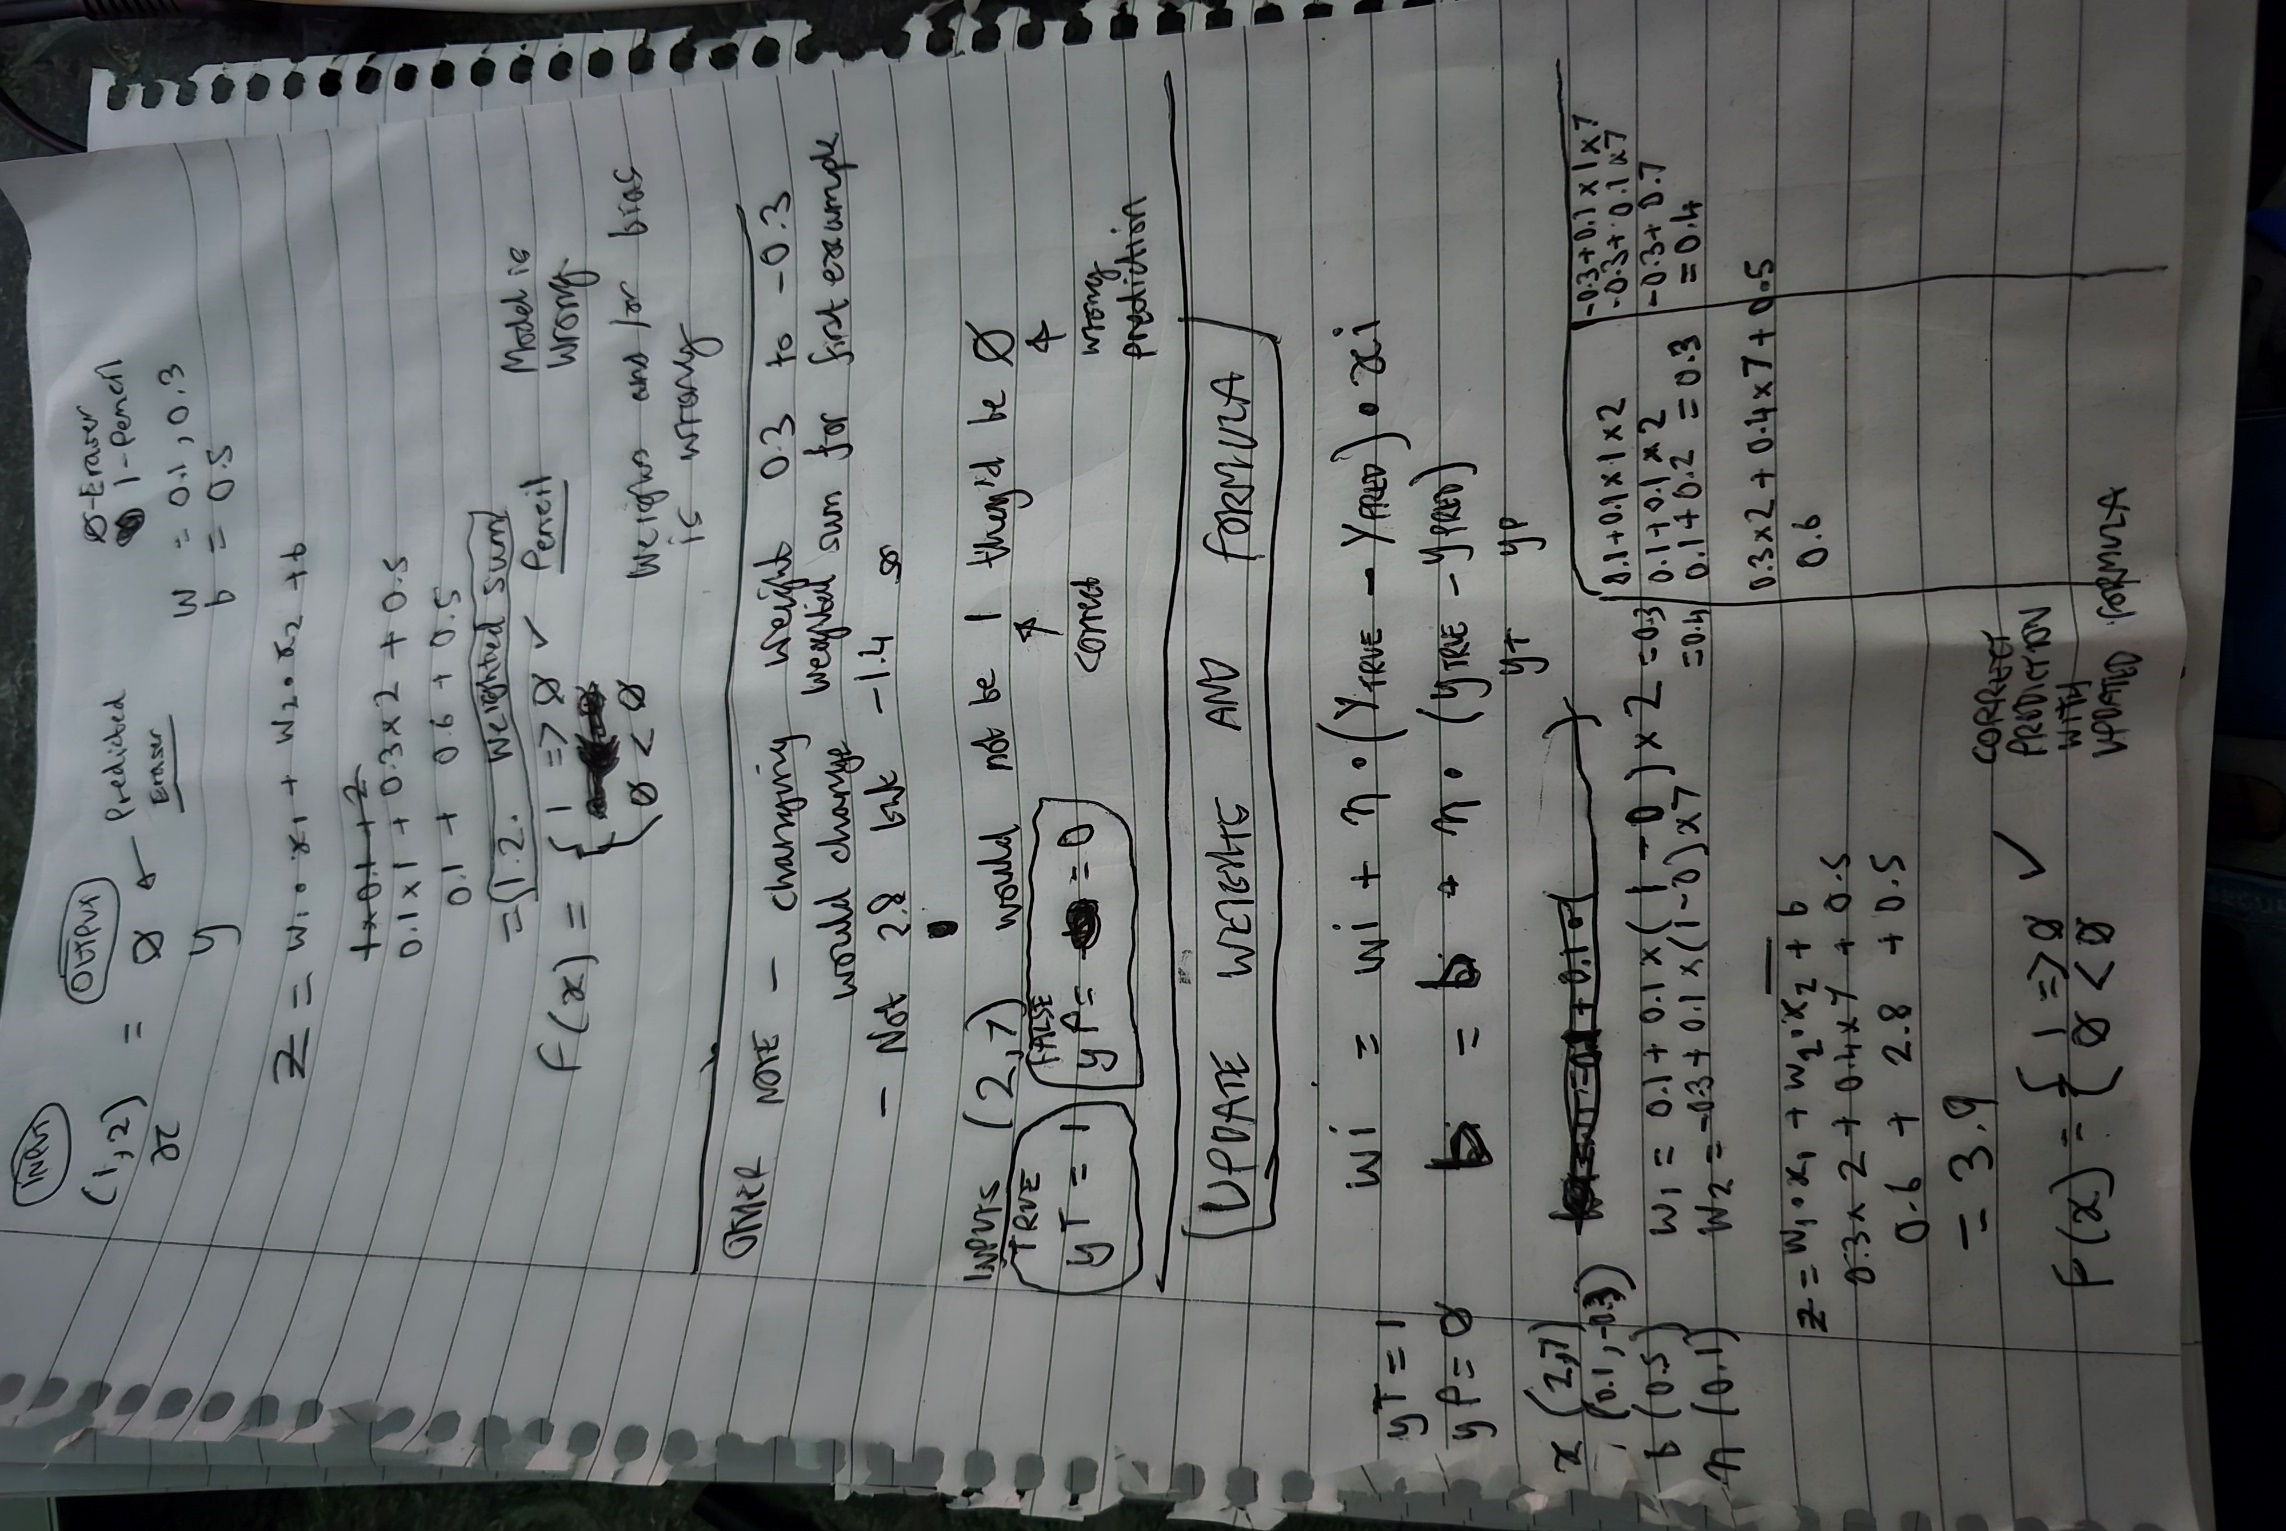 INPUT
OUTPUT
(1,2) = Ø ← Predicted Eraser
x y
Ø-Eraser
1-Pencil
W = 0.1, 0.3
b = 0.5
Z = W1∘x1 + W2∘x2 + b
1x0.1+2
0.1x1 + 0.3x2 + 0.5
0.1 + 0.6 + 0.5
= 1.2. Weighted sum
F(x) = { 1 => Ø ✓ Pencil
Ø < Ø
Model is
wrong.
Weights and/or bias
is wrong
OTHER NOTE - changing weight 0.3 to -0.3
would change weighted sum for first example
- Not 2.8 but -1.4 so
INPUTS (2,7) would not be 1 they'd be Ø
↑ correct
↑ wrong
prediction
TRUE
yT = 1
FALSE
yP = 0
UPDATE WEIGHTS AND FORMULA
yT = 1
yP = Ø
wi = wi + η∘(YTRUE - YPRED)∘xi
b = b + η∘(yTRUE - yPRED)
yT yP
x (2,7)
(0.1,-0.3)
b (0.5)
η (0.1)
W1 = 0.1 + 0.1x(1-0)x2 = 0.3
W2 = -0.3 + 0.1x(1-0)x7 = 0.4
0.1+0.1x1x2
0.1+0.1x2
0.1+0.2 = 0.3
-0.3+0.1x1x7
-0.3+0.1x7
-0.3+0.7
= 0.4
0.3x2+0.4x7+0.5
0.6
Z = W1∘x1 + W2∘x2 + b
0.3x2 + 0.4x7 + 0.5
0.6 + 2.8 + 0.5
= 3.9
F(x) = { 1 => Ø ✓
Ø < Ø
CORRECT
PREDICTION
WITH
UPDATED FORMULA